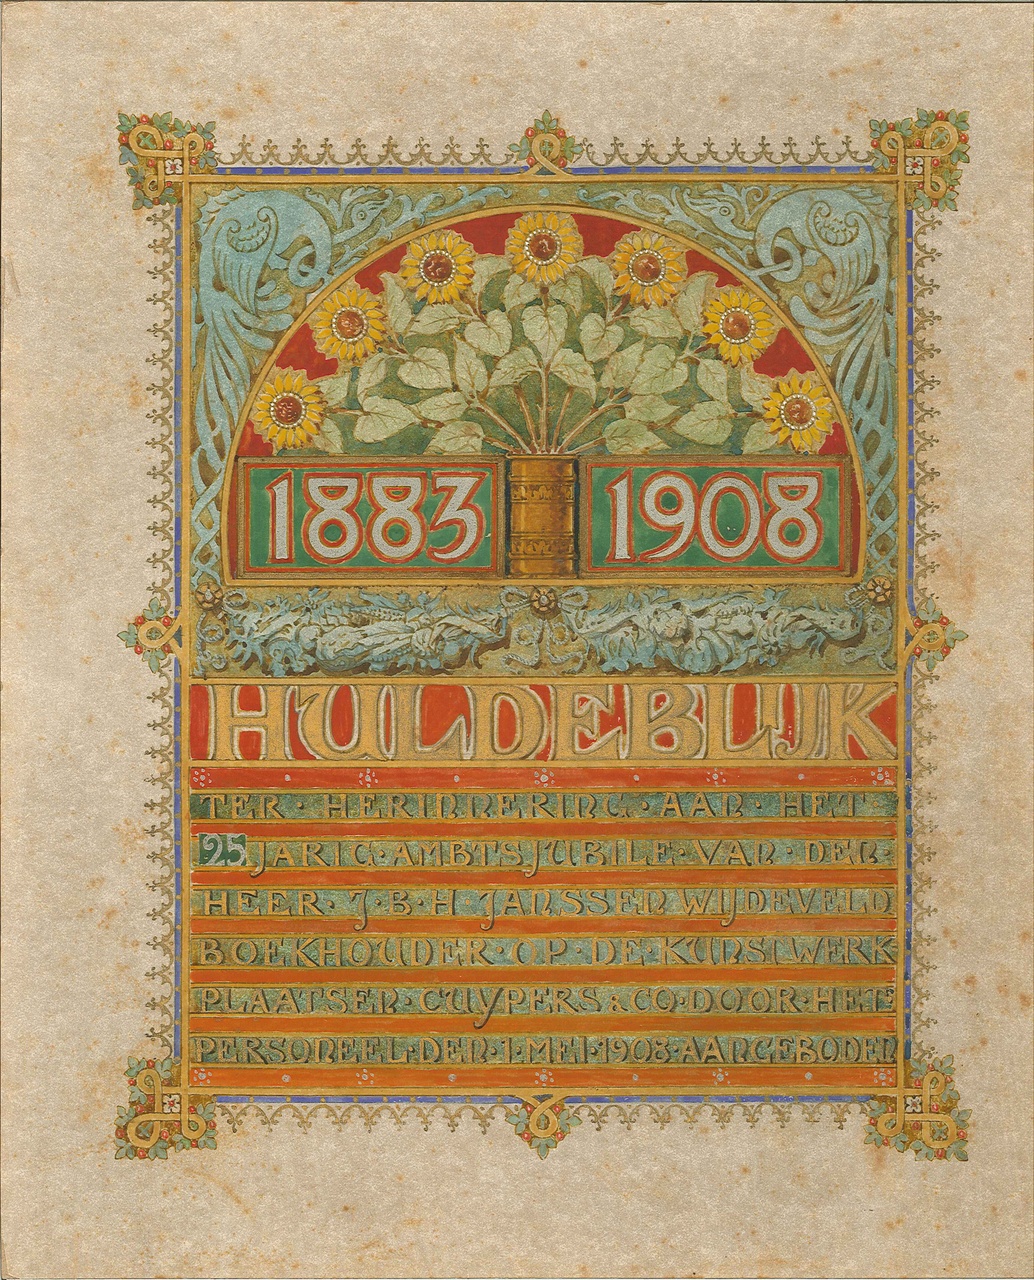 1883 1908
HULDEBLIJK
TER · HERINNERING · AAN · HET
25 JARIG · AMBTSJUBILÉ · VAN · DEN
HEER · J · B · H JANSSEN WIJDEVELD
BOEKHOUDER · OP · DE · KUNSTWERK
PLAATSEN · CUYPERS & CO · DOOR · HET
PERSONEEL · DEN · 1 · MEI · 1908 · AANGEBODEN